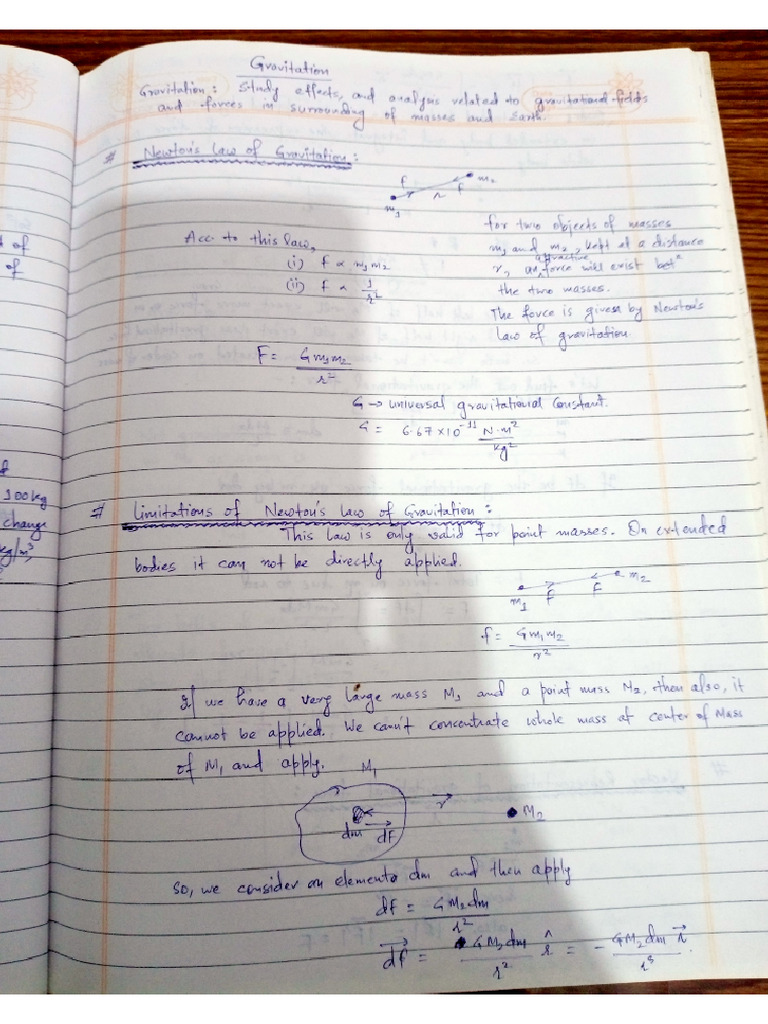 Gravitation
Gravitation: Study effects, and analysis related to gravitational fields
and forces in surrounding of masses and Earth.
# Newton's Law of Gravitation:
F F m2
m1 r
for two objects of masses
Acc. to this law, m1 and m2, kept at a distance
attractive
(i) F ∝ m1m2 r, an force will exist betn
(ii) F ∝ 1/r² the two masses.
The force is given by Newton's
law of gravitation.
F = Gm1m2/r²
G → Universal gravitational Constant.
G = 6.67 × 10⁻¹¹ N·m²/kg²
100kg
change
kg/m³
# Limitations of Newton's Law of Gravitation:
This law is only valid for point masses. On extended
bodies it can not be directly applied.
m1 F F m2
f = Gm1m2/r²
If we have a very large mass M1 and a point mass M2, then also, it
cannot be applied. We can't concentrate whole mass at center of Mass
of M1 and apply.
M1
r⃗ M2
dm dF
So, we consider an elemento dm and then apply
dF = GM2dm/r²
dF⃗ = GM2dm/r² r̂ = - GM2dm r⃗/r³.